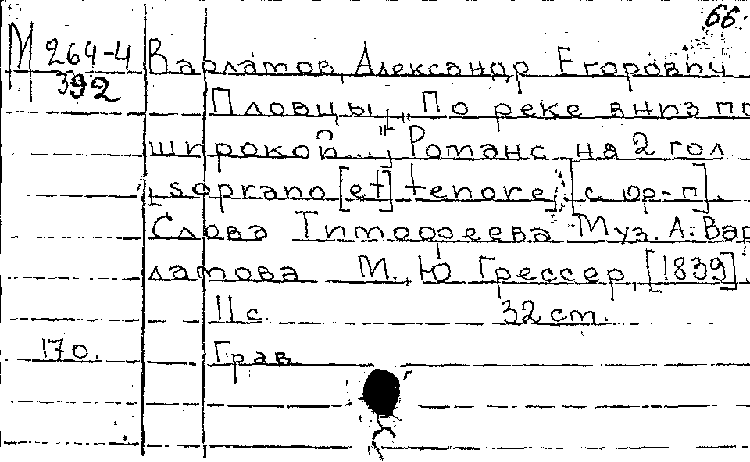 66.
М 264-4 Варламов, Александр Егорович
392
Пловцы. "По реке вниз по
широкой..." Романс на 2 гол.
soprano [et] tenore [с ор-п].
Слова Тимофеева Муз. А. Вар
ламова М., Ю Грессер, [1839]
11 с. 32 cm.
170. Грав.